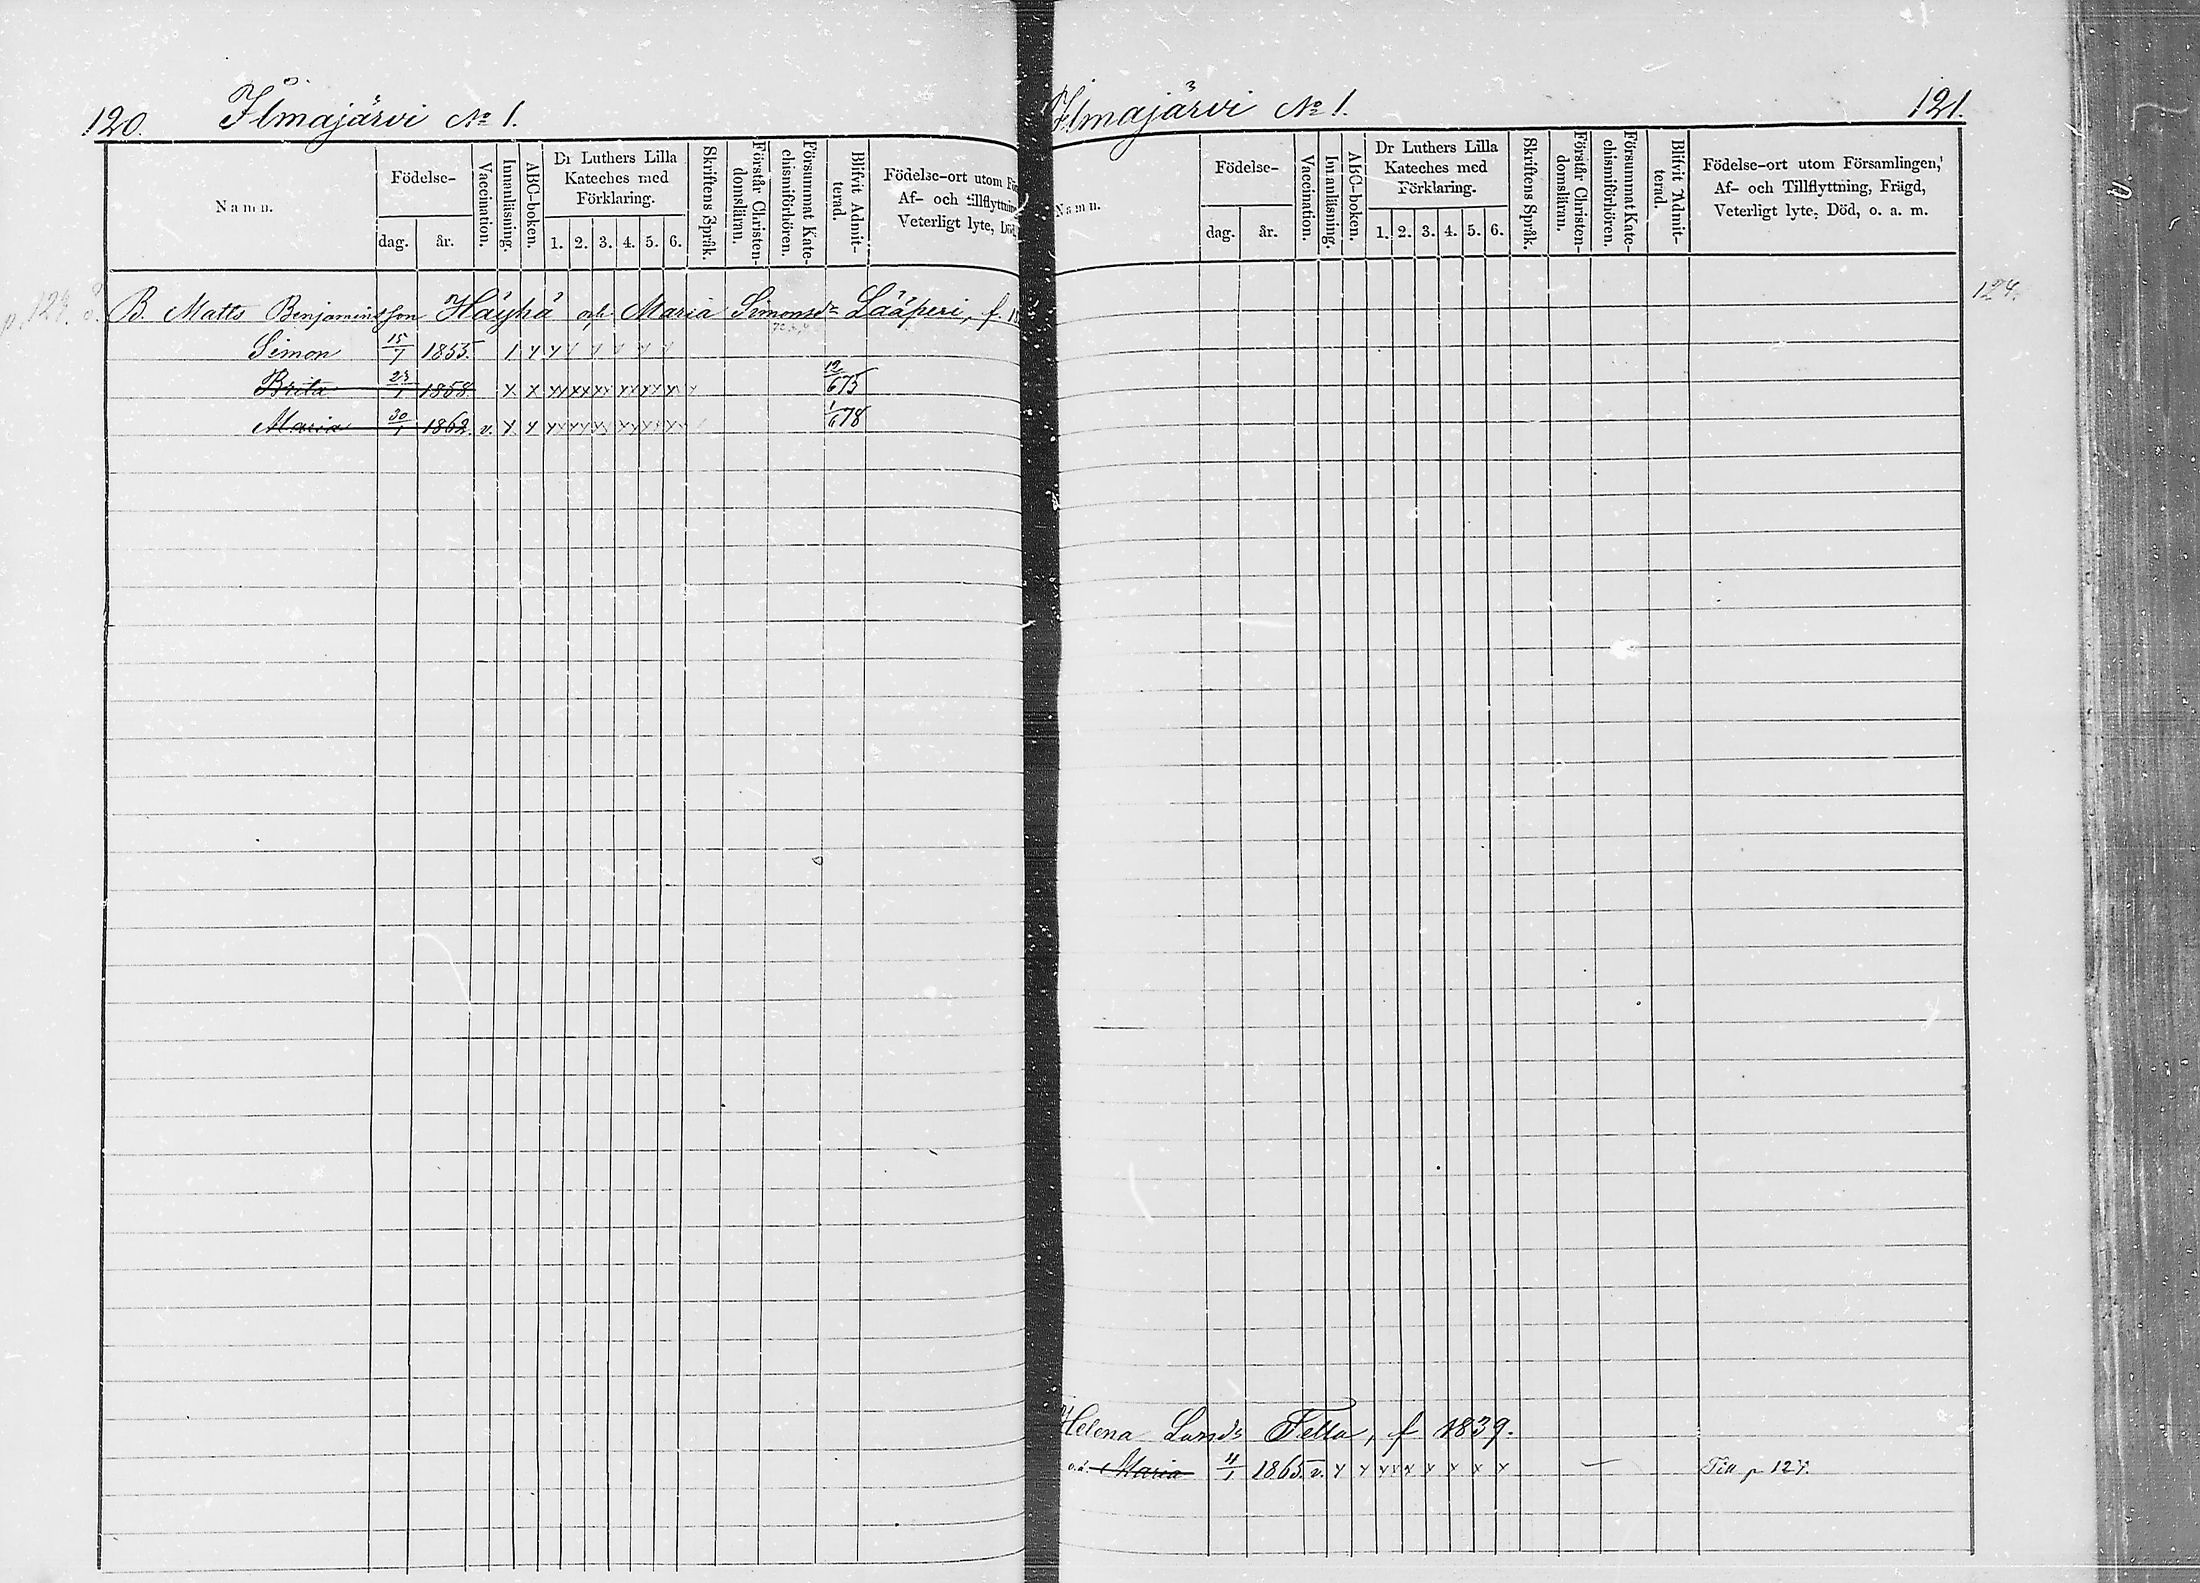 120. Ilmajärvi № 1.
Namn.
Födelse-
dag. år.
Vaccination.
Innanläsning.
ABC-boken.
Dr Luthers Lilla
Kateches med
Förklaring.
1. 2. 3. 4. 5. 6.
Skriftens Språk.
Förstår Christen-
domsläran.
Försummat Kate-
chismiförhören.
Blifvit Admit-
terad.
Födelse-ort utom
Af- och tillflyttning
Veterligt lyte, Död
B. Matts Benjaminsson Häyhä och Maria Simonsdr Lääperi, f.
Simon 15/1 1855.
Brita 23/1 1858. 12/6 75
Maria 30/1 1862. v. 1/6 78
Ilmajärvi № 1. 121.
Namn.
Födelse-
dag. år.
Vaccination.
Innanläsning.
ABC-boken.
Dr Luthers Lilla
Kateches med
Förklaring.
1. 2. 3. 4. 5. 6.
Skriftens Språk.
Förstår Christen-
domsläran.
Försummat Kate-
chismiförhören.
Blifvit Admit-
terad.
Födelse-ort utom Församlingen,
Af- och Tillflyttning, Frägd,
Veterligt lyte, Död, o. a. m.
124.
Helena Larsdr Tella, f 1839.
o.ä. Maria 4/1 1865. v. Till p 127.